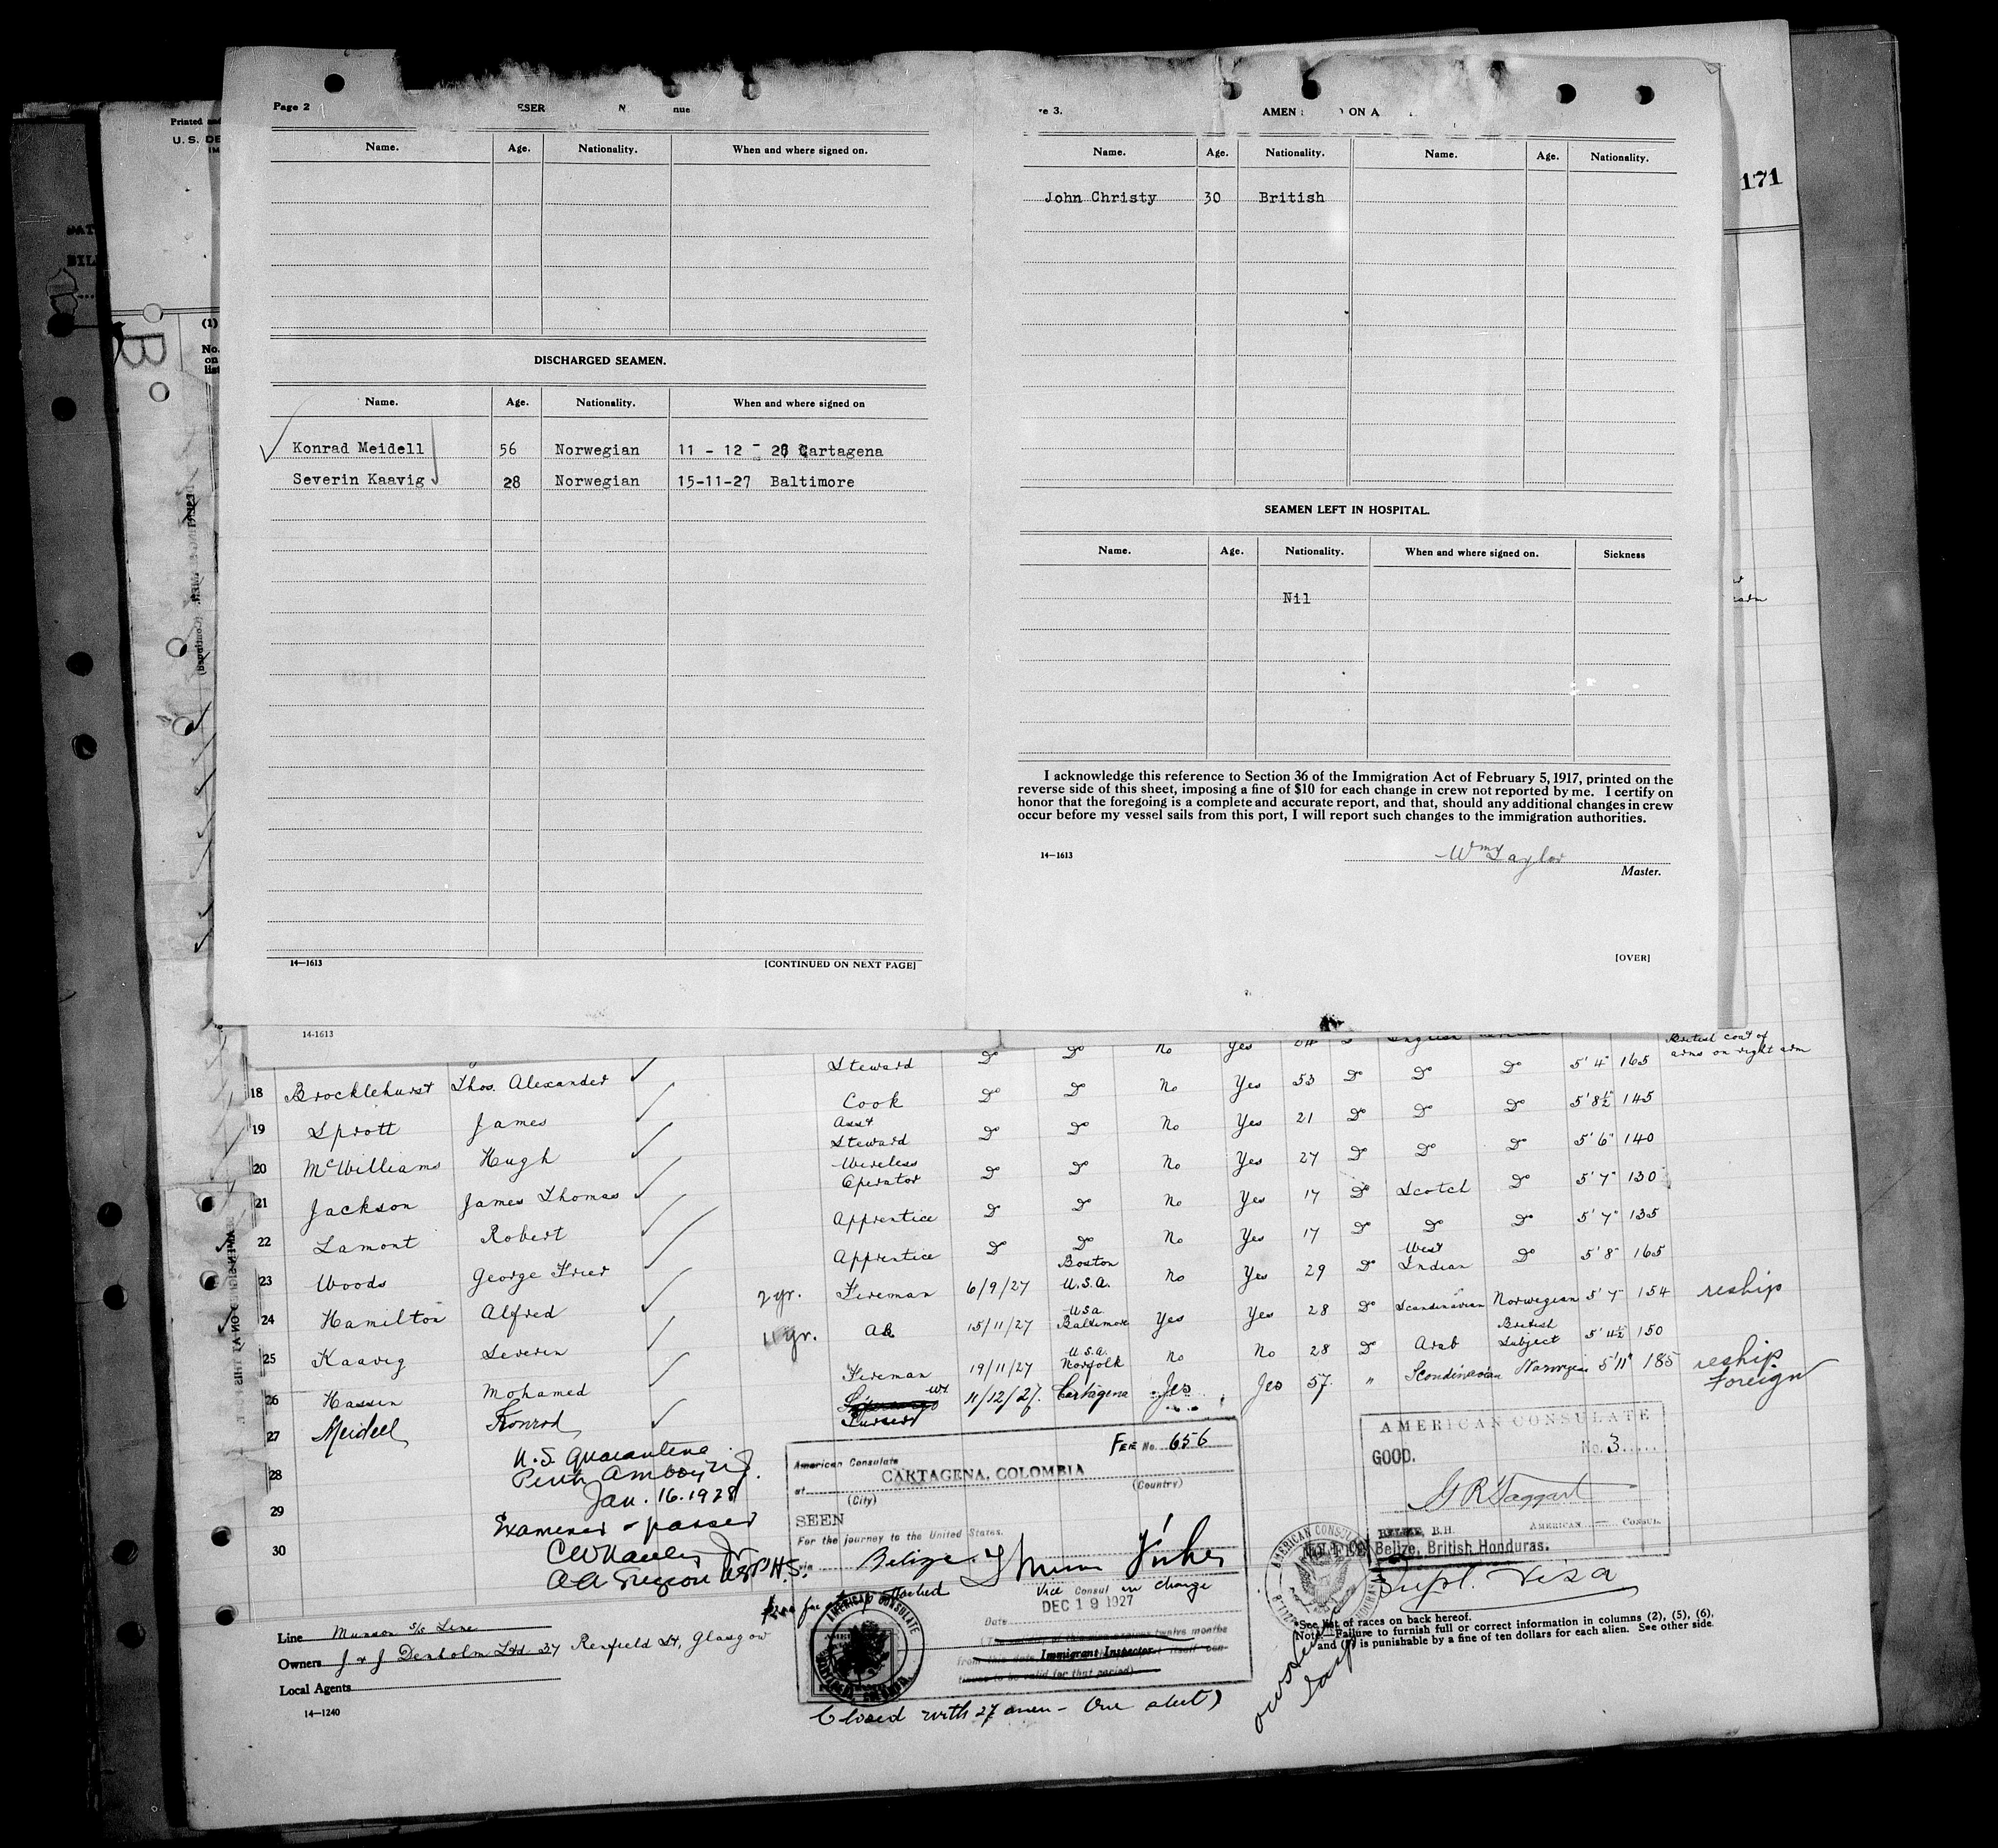 Page 2
Name. Age. Nationality. When and where signed on.
DISCHARGED SEAMEN.
Name. Age. Nationality. When and where signed on
Konrad Meidell 56 Norwegian 11 - 12 - 28 Cartagena
Severin Kaavig 28 Norwegian 15-11-27 Baltimore
14—1613
[CONTINUED ON NEXT PAGE]
14-1613
Name. Age. Nationality. Name. Age. Nationality.
John Christy 30 British
SEAMEN LEFT IN HOSPITAL.
Name. Age. Nationality. When and where signed on. Sickness
Nil
I acknowledge this reference to Section 36 of the Immigration Act of February 5, 1917, printed on the
reverse side of this sheet, imposing a fine of $10 for each change in crew not reported by me. I certify on
honor that the foregoing is a complete and accurate report, and that, should any additional changes in crew
occur before my vessel sails from this port, I will report such changes to the immigration authorities.
14—1613
Wm Taylor
Master.
[OVER]
171
Printed and
U. S. DE
(1)
No.
on
list
B
Steward Do Do No Yes
British coat of
arms on right arm
18 Brocklehurst Thos. Alexander Cook Do Do No Yes 53 Do Do Do 5' 4" 165
19 Sprott James Asst Steward Do Do No Yes 21 Do Do Do 5' 8½" 145
20 McWilliams Hugh Wireless Operator Do Do No Yes 27 Do Do Do 5' 6" 140
21 Jackson James Thomas Apprentice Do Do No Yes 17 Do Scotch Do 5' 7" 130
22 Lamont Robert Apprentice Do Do No Yes 17 Do Do Do 5' 7" 135
23 Woods George Frier Fireman 6/9/27 Boston U.S.A. No Yes 29 Do West Indian Do 5' 8" 165
24 Hamilton Alfred
2 yr.
AB 15/11/27 USA Baltimore Yes Yes 28 Do Scandinavian Norwegian 5' 7" 154 reship
25 Kaavig Severin
11 yr.
Fireman 19/11/27 U.S.A. Norfolk No No 28 Do Arab British Subject 5' 4½" 150
26 Hassen Mohamed
Pursers 11/12/27. Cartagena Yes Yes 57. " Scandinavian Norwegian 5'11" 185 reship
foreign
27 Meidell Konrad
28
29
30
U.S. Quarantine
Perth Amboy N.J.
Jan. 16. 1928
Examined & passed
AA Surgeon USPHS.
FEE No. 656
American Consulate
at CARTAGENA, COLOMBIA
(City) (Country)
SEEN
For the journey to the United States.
via Belize
Vice Consul in charge
Date DEC 19 1927
Immigrant Inspector
AMERICAN CONSULATE
Closed with 27 men - One sheet)
AMERICAN CONSULATE
GOOD. No. 3
G R Taggart
AMERICAN CONSUL.
BELIZE, B.H.
Belize, British Honduras.
Supl. Visa
Line Munson S/S Line
Owners J. & J. Denholm Ltd. 27 Renfield St, Glasgow
Local Agents
14—1240
*See list of races on back hereof.
Note.—Failure to furnish full or correct information in columns (2), (5), (6),
and (7) is punishable by a fine of ten dollars for each alien. See other side.